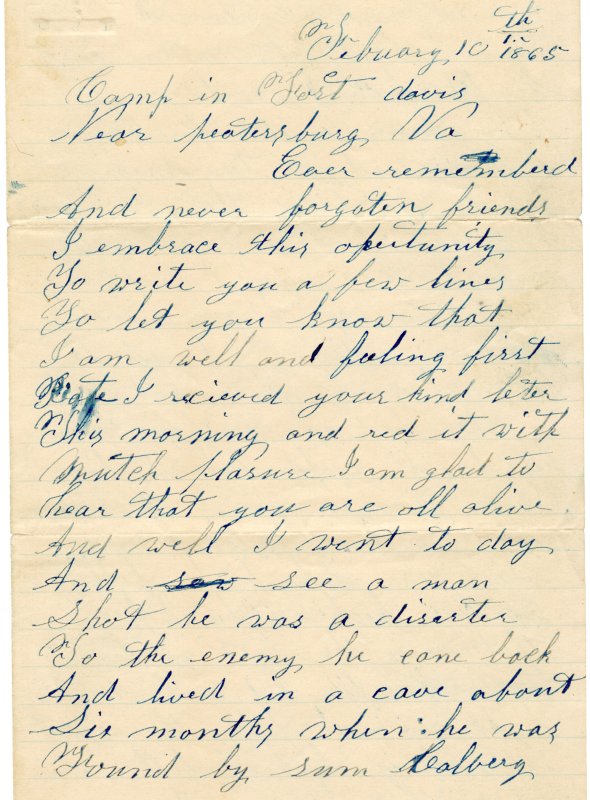 Febuary 10th 1865
Camp in Fort davis
Near peatersburg Va
Ever rememberd
And never forgoten friends
I embrace this opertunity
To write you a few lines
To let you know that
I am well and feeling first
Rate I recieved your kind leter
This morning and red it with
mutch plasure I am glad to
hear that you are all alive
And well I went to day
And saw see a man
Shot he was a diserter
To the enemy he came back
And lived in a cave about
Six months when he was
Found by sum